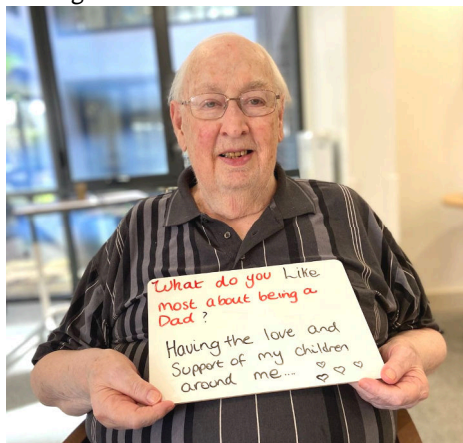 What do you Like
most about being a
Dad?
Having the love and
Support of my children
around me.... ♡ ♡ ♡